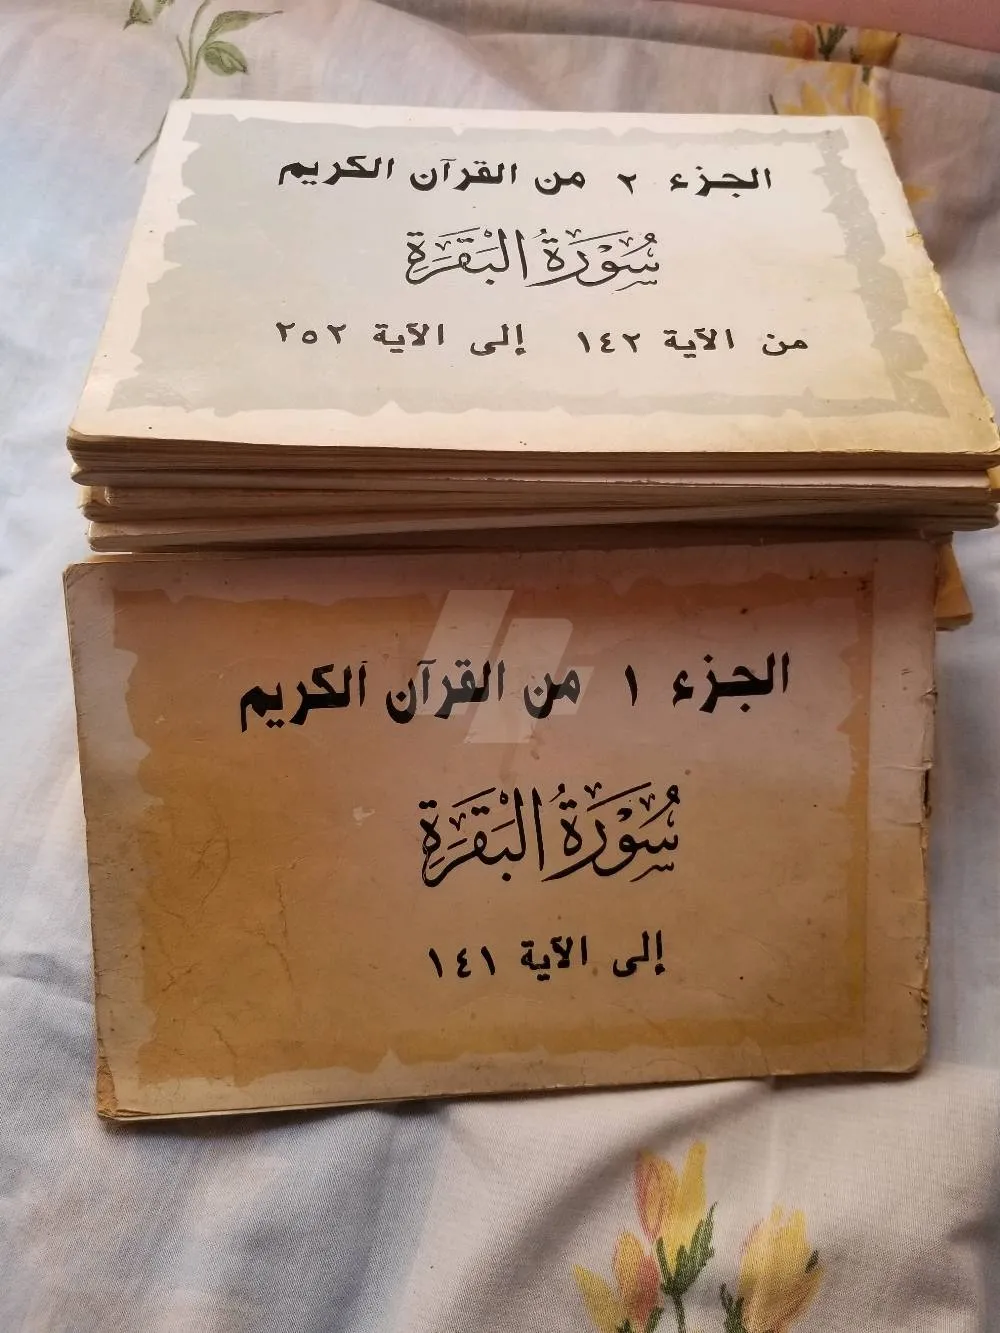 الجزء ٢ من القرآن الكريم
سُورَةُ البَقَرَةِ
من الآية ١٤٢ إلى الآية ٢٥٢
الجزء ١ من القرآن الكريم
سُورَةُ البَقَرَةِ
إلى الآية ١٤١